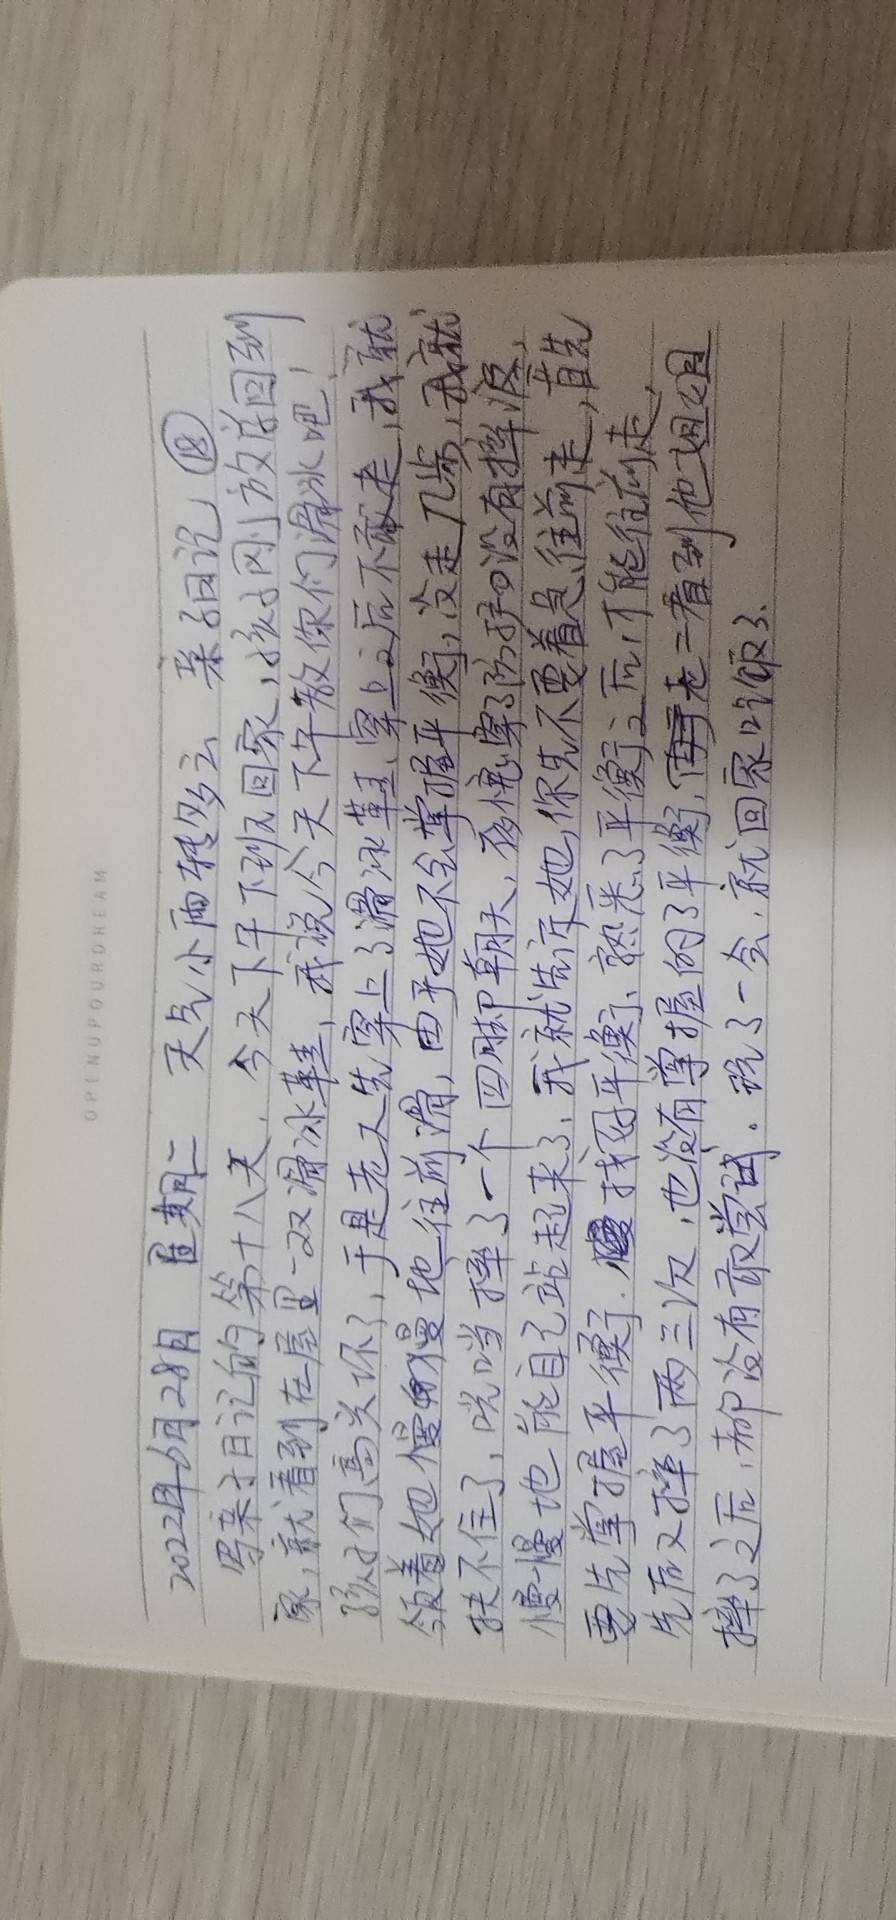 OPENUPOURDREAM
2022年6月28日 星期二 天气小雨转多云 亲子日记 ⑱
写亲子日记的第十八天,今天下午下班回家,孩子刚放学回到
家,就看到在屋里一双滑冰鞋,我说今天下午教你们滑冰吧,
孩子们高兴坏了,于是老大先穿上了滑冰鞋,穿上之后不敢走,我就
领着她慢慢地往前滑,由于她不会掌握平衡,没走几步,我就
扶不住了,咣当摔了一个四脚朝天,穿了防护没有摔疼,
慢慢地能自己站起来了,我就告诉她,你先不要着急往前走,首先
要先掌握平衡.找好平衡、熟悉了平衡之后,才能往前走,
先后又摔了两三次,也没有掌握的了平衡,老二看到他姐姐
摔了之后,都没有敢尝试.玩了一会,就回家吃饭了.